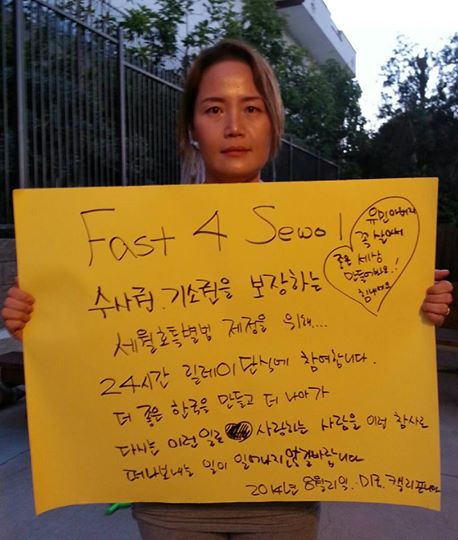 Fast 4 Sewol
유민아버지
꼭 살아서
좋은 세상
만들어봐요!
힘내세요
수사권.기소권을 보장하는
세월호특별법 제정을 위해....
24시간 릴레이단식에 참여합니다.
더 좋은 한국을 만들고 더 나아가
다시는 이런일로 사랑하는 사람을 이런 참사로
떠나보내는 일이 일어나지않길바랍니다
2014년 8월21일. 미국. 캘리포니아